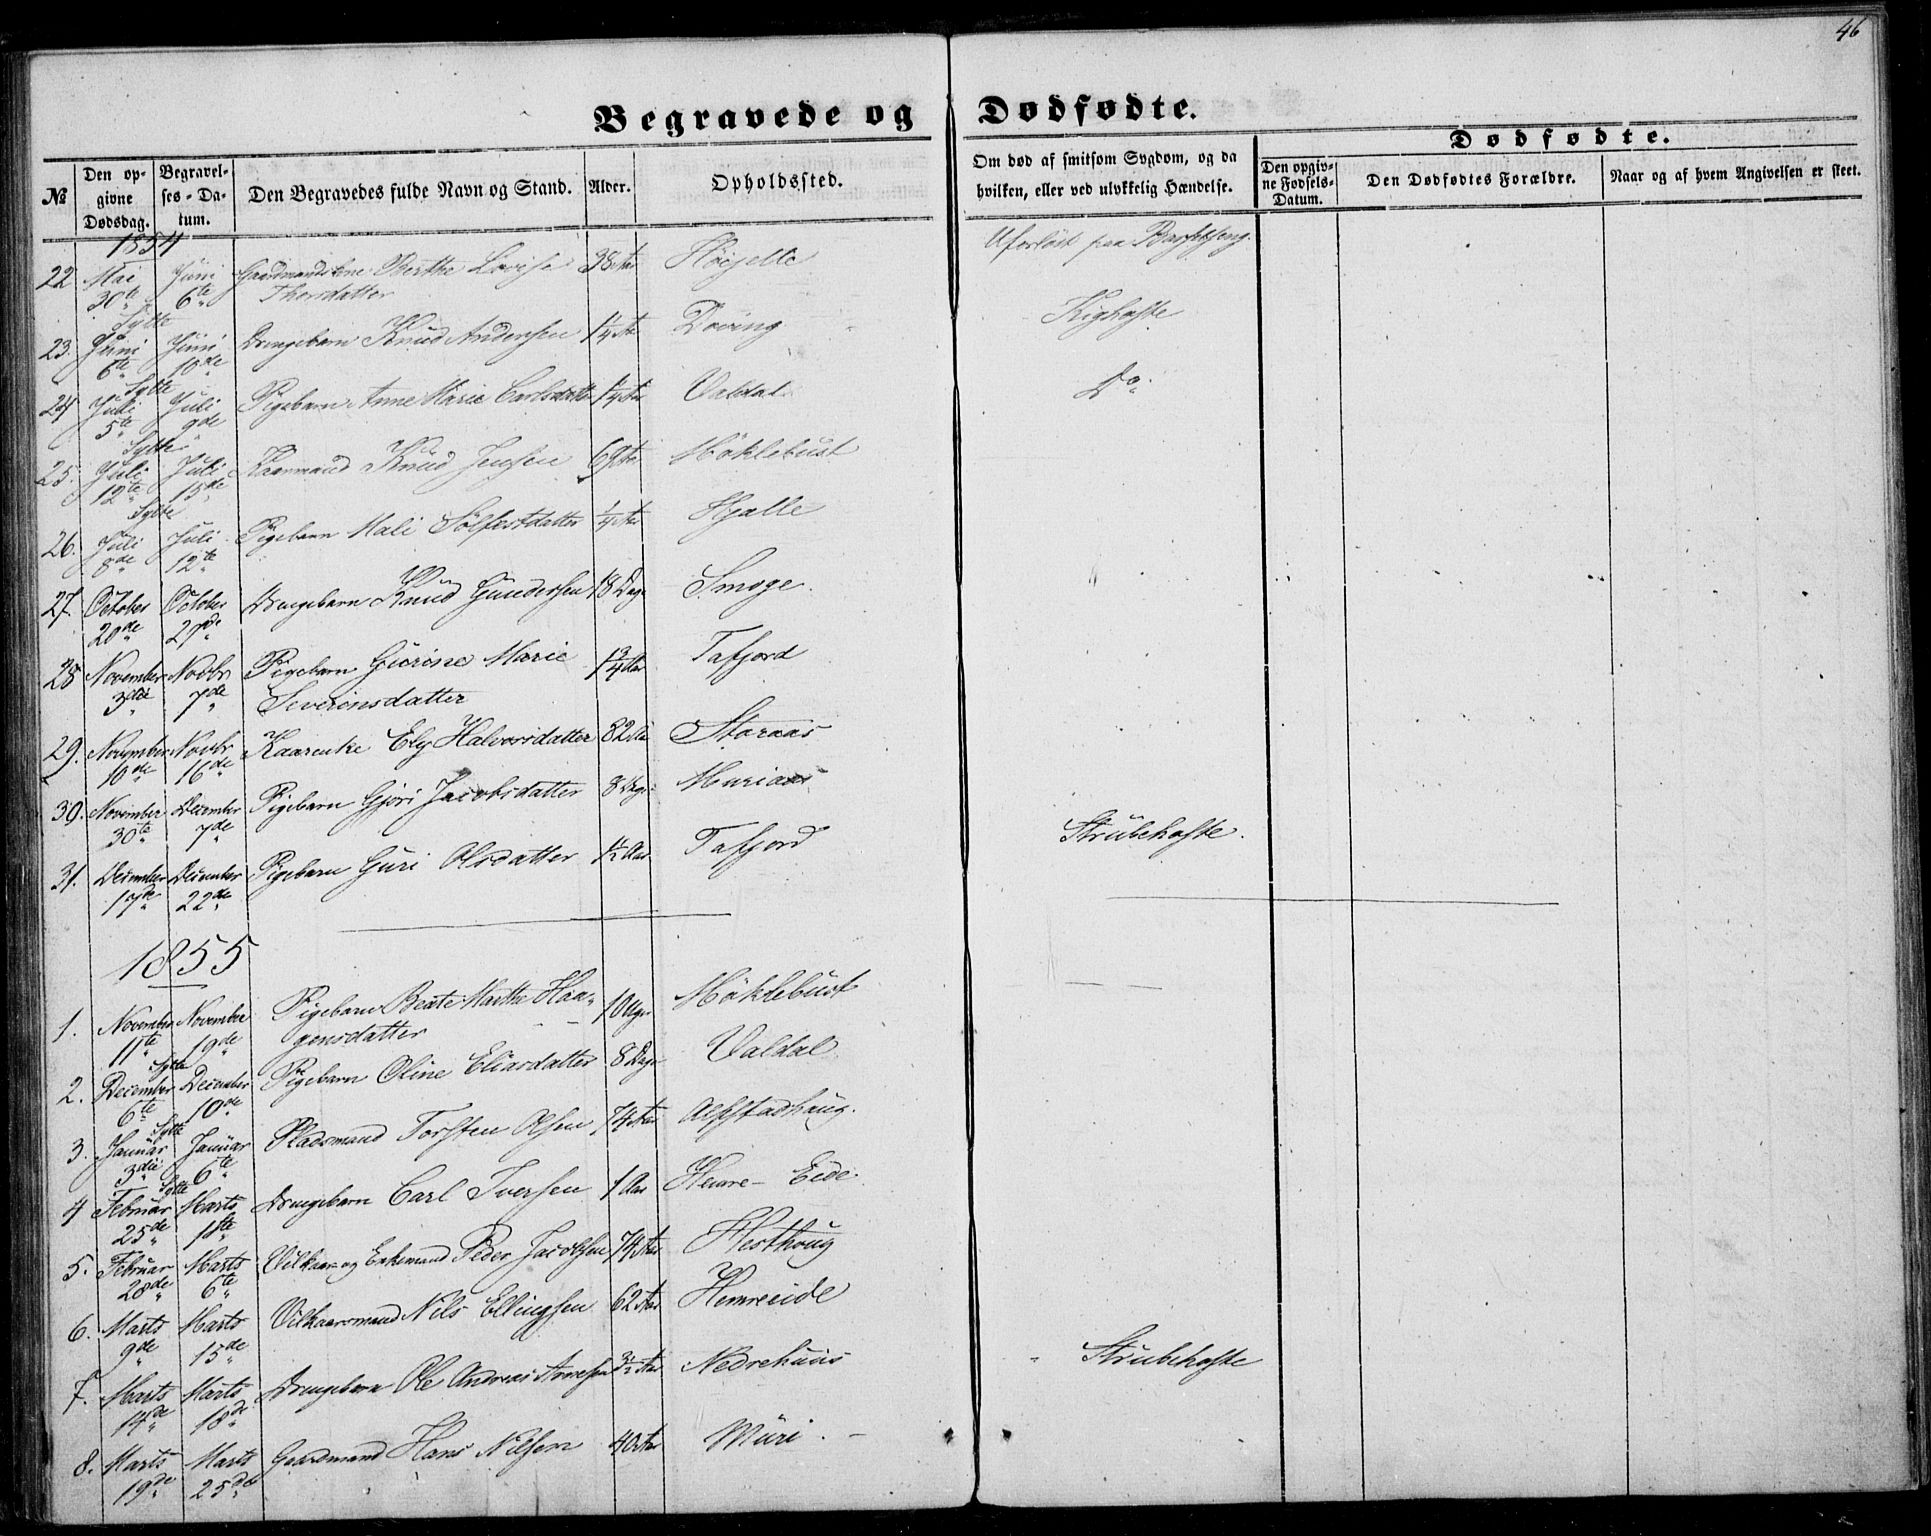 46
Begravede og Dødfødte.
Dødfødte.
№
Den op-
givne
Dødsdag.
Begravel-
ses-Da-
tum.
Den Begravedes fulde Navn og Stand.
Alder.
Opholdssted.
Om død af smitsom Sygdom, og da
hvilken, eller ved ulykkelig Hændelse.
Den opgiv-
ne Fødsels-
Datum.
Den Dødfødtes Forældre.
Naar og af hvem Angivelsen er skeet.
1854
22 Mai 30te Juni 6te Gaardmandskone Berthe Lovise 38 Aar Uforløst paa Barselseng.
Thorsdatter
Sylte
23. Juni 6te Juni 10de Drengebarn Knud Andersen 1/4 Aar Døving Kighoste
Sylte
24 Juli 5te Juli 9de Pigebarn Anne Marie Carlsdatter 1/4 Aar Valdal Do
Sylte
25. Juli 12te Juli 15de Kaarmand Knud Jensen 69 Aar Möklebust
Sylte
26. Juli 8de Juli 12te Pigebarn Mali Sölfestdatter 1/4 Aar Hjelle
27. October 20de October 27de Drengebarn Knud Gundersen 18 Dage Smoge
28 November 3die Novbr 7de Pigebarn Gurine Marie Tafjord
Severinsdatter
29. November 10de Novbr 16de Kaarenke Ely Halvorsdatter 82 Aar Storaas
30. November 30te December 7de Pigebarn Gjöri Jacobsdatter 8 Dage Muriaas
31. December 17de December 22de Pigebarn Guri Olsdatter 1/2 Aar Tafjord Strubehoste.
1855
1. November 11te November 19de Pigebarn Beate Marthe Haa- 10 Uger Möklebust
gensdatter
Sylte
2. December 6te December 10de Pigebarn Oline Eliasdatter 8 Dage Valdal
Sylte
3. Januar 3die Januar 6te Pladsmand Torsten Olsen 74 Aar Alstadhaug.
Sylte
4 Februar 25de Marts 1ste Drengebarn Carl Iversen 1 Aar Hemre-Eide
5. Februar 28de Marts 6te Vilkaar og Enkemand Peder Jacobsen 74 Aar Hesthoug
6. Marts 9de Marts 15de Vilkaarsmand Nils Ellingsen 62 Aar Hemreeide
7. Marts 14de Marts 18de Drengebarn Ole Andreas Arnesen 3 1/2 Aar Nedrehuus Strubehoste
8. Marts 19de Marts 25de Gaardmand Hans Nilsen 40 Aar Muri.